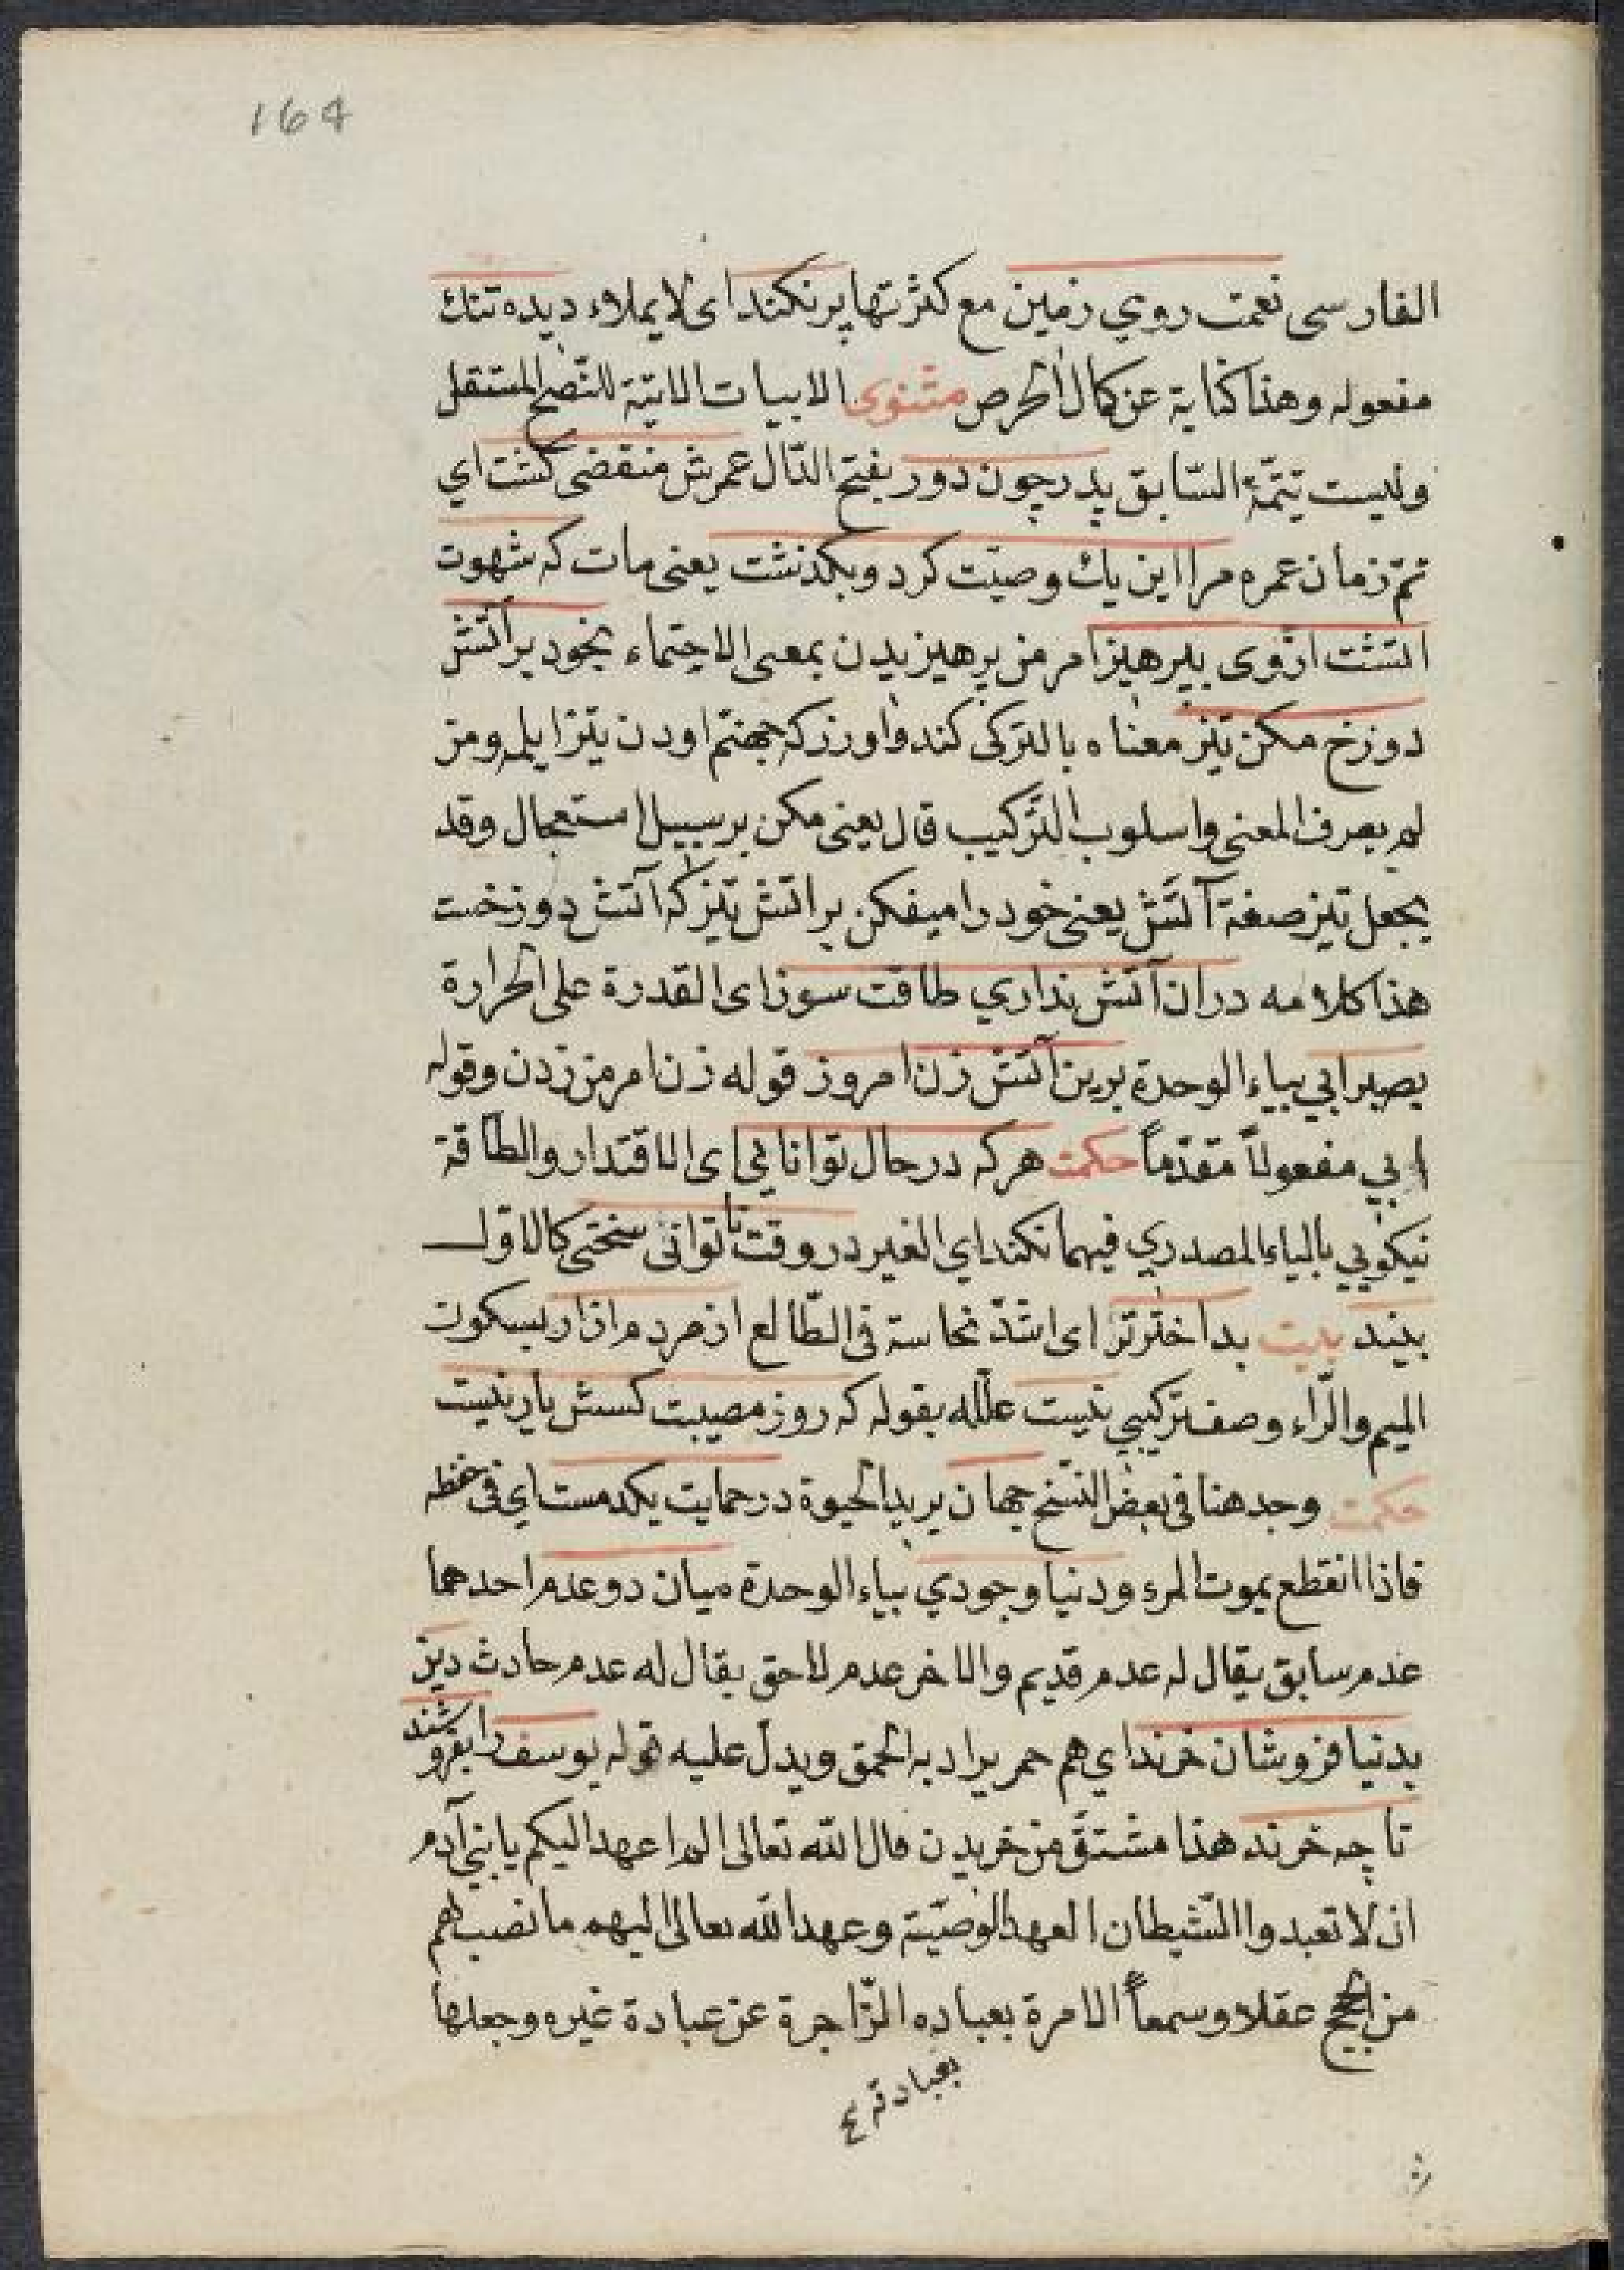 164
الفارسى نعمت روي زمين مع كثرتها پر نكند اى لا يملاء ديده تنك
مفعوله وهذا كناية عن كمال الحرص مثنوى الابيات الاتية للنصح المستقل
وليست تتمّة السّابق پدر چون دور بفتح الدّال عمرش منقضى كشت اي
تمّ زمان عمره مرا اين يك وصيّت كرد و بكذشت يعنى مات كه شهوت
آتشت ازوى بپرهيز امر من پرهيزيدن بمعنى الاحتماء بخود بر آتش
دوزخ مكن تيز معناه بالتركى كندو اوزركه جهنّم اودن تيز ايلمه ومن
لم يعرف المعنى واسلوب التّركيب قال يعنى مكن بر سبيل استعجال وقد
يجعل تيز صفة آتش يعنى خود را ميفكن بر اتش تيز كه آتش دوزخست
هذا كلامه در ان آتش نداري طاقت سوز اى القدرة على الحرارة
بصبر ابي بياء الوحدة برين آتش زن امروز قوله زن امر من زدن وقوله
ابي مفعولاً مقدّماً حكمت هركه در حال توانايي اى الاقتدار والطاقة
نيكويي بالياء المصدري فيهما نكند اي الغير در وقت ناتوانى سختى كالاوّل
بيند بيت بد اختر تر اى اشدّ نحاسة فى الطّالع از مردم ازار بسكون
الميم والرّاء وصف تركيبي نيست علّله بقوله كه روز مصيبت كسش يار نيست
حكمت وجد هنا فى بعض النسّخ جهان يريد الحيوة در حمايت يكدمست اي فى حفظه
فاذا انقطع يموت المرء و دنيا وجودي بياء الوحدة ميان دو عدم احدهما
عدم سابق يقال له عدم قديم والاخر عدم لاحق يقال له عدم حادث دين
بدنيا فروشان خرند اي هم حمر يراد به الحمق ويدلّ عليه قوله يوسف را بفروشند
تا چه خرند هذا مشتقّ من خريدن قال الله تعالى الم اعهد اليكم يا بني آدم
ان لا تعبدوا الشّيطان العهد الوصيّة وعهد الله تعالى اليهم ما نصب لهم
من الحجج عقلا وسمعاً الامرة بعباده الزّاجرة عن عبادة غيره وجعلها
بعبادته ع